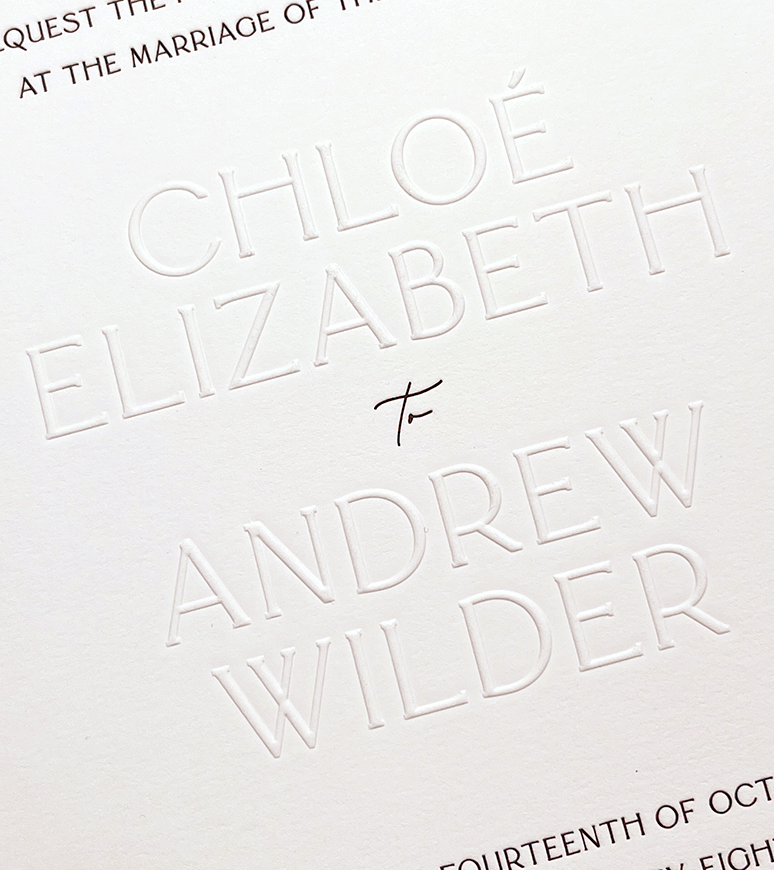 QUEST THE
AT THE MARRIAGE OF
CHLOÉ
ELIZABETH
to
ANDREW
WILDER
FOURTEENTH OF OCT
EIGH